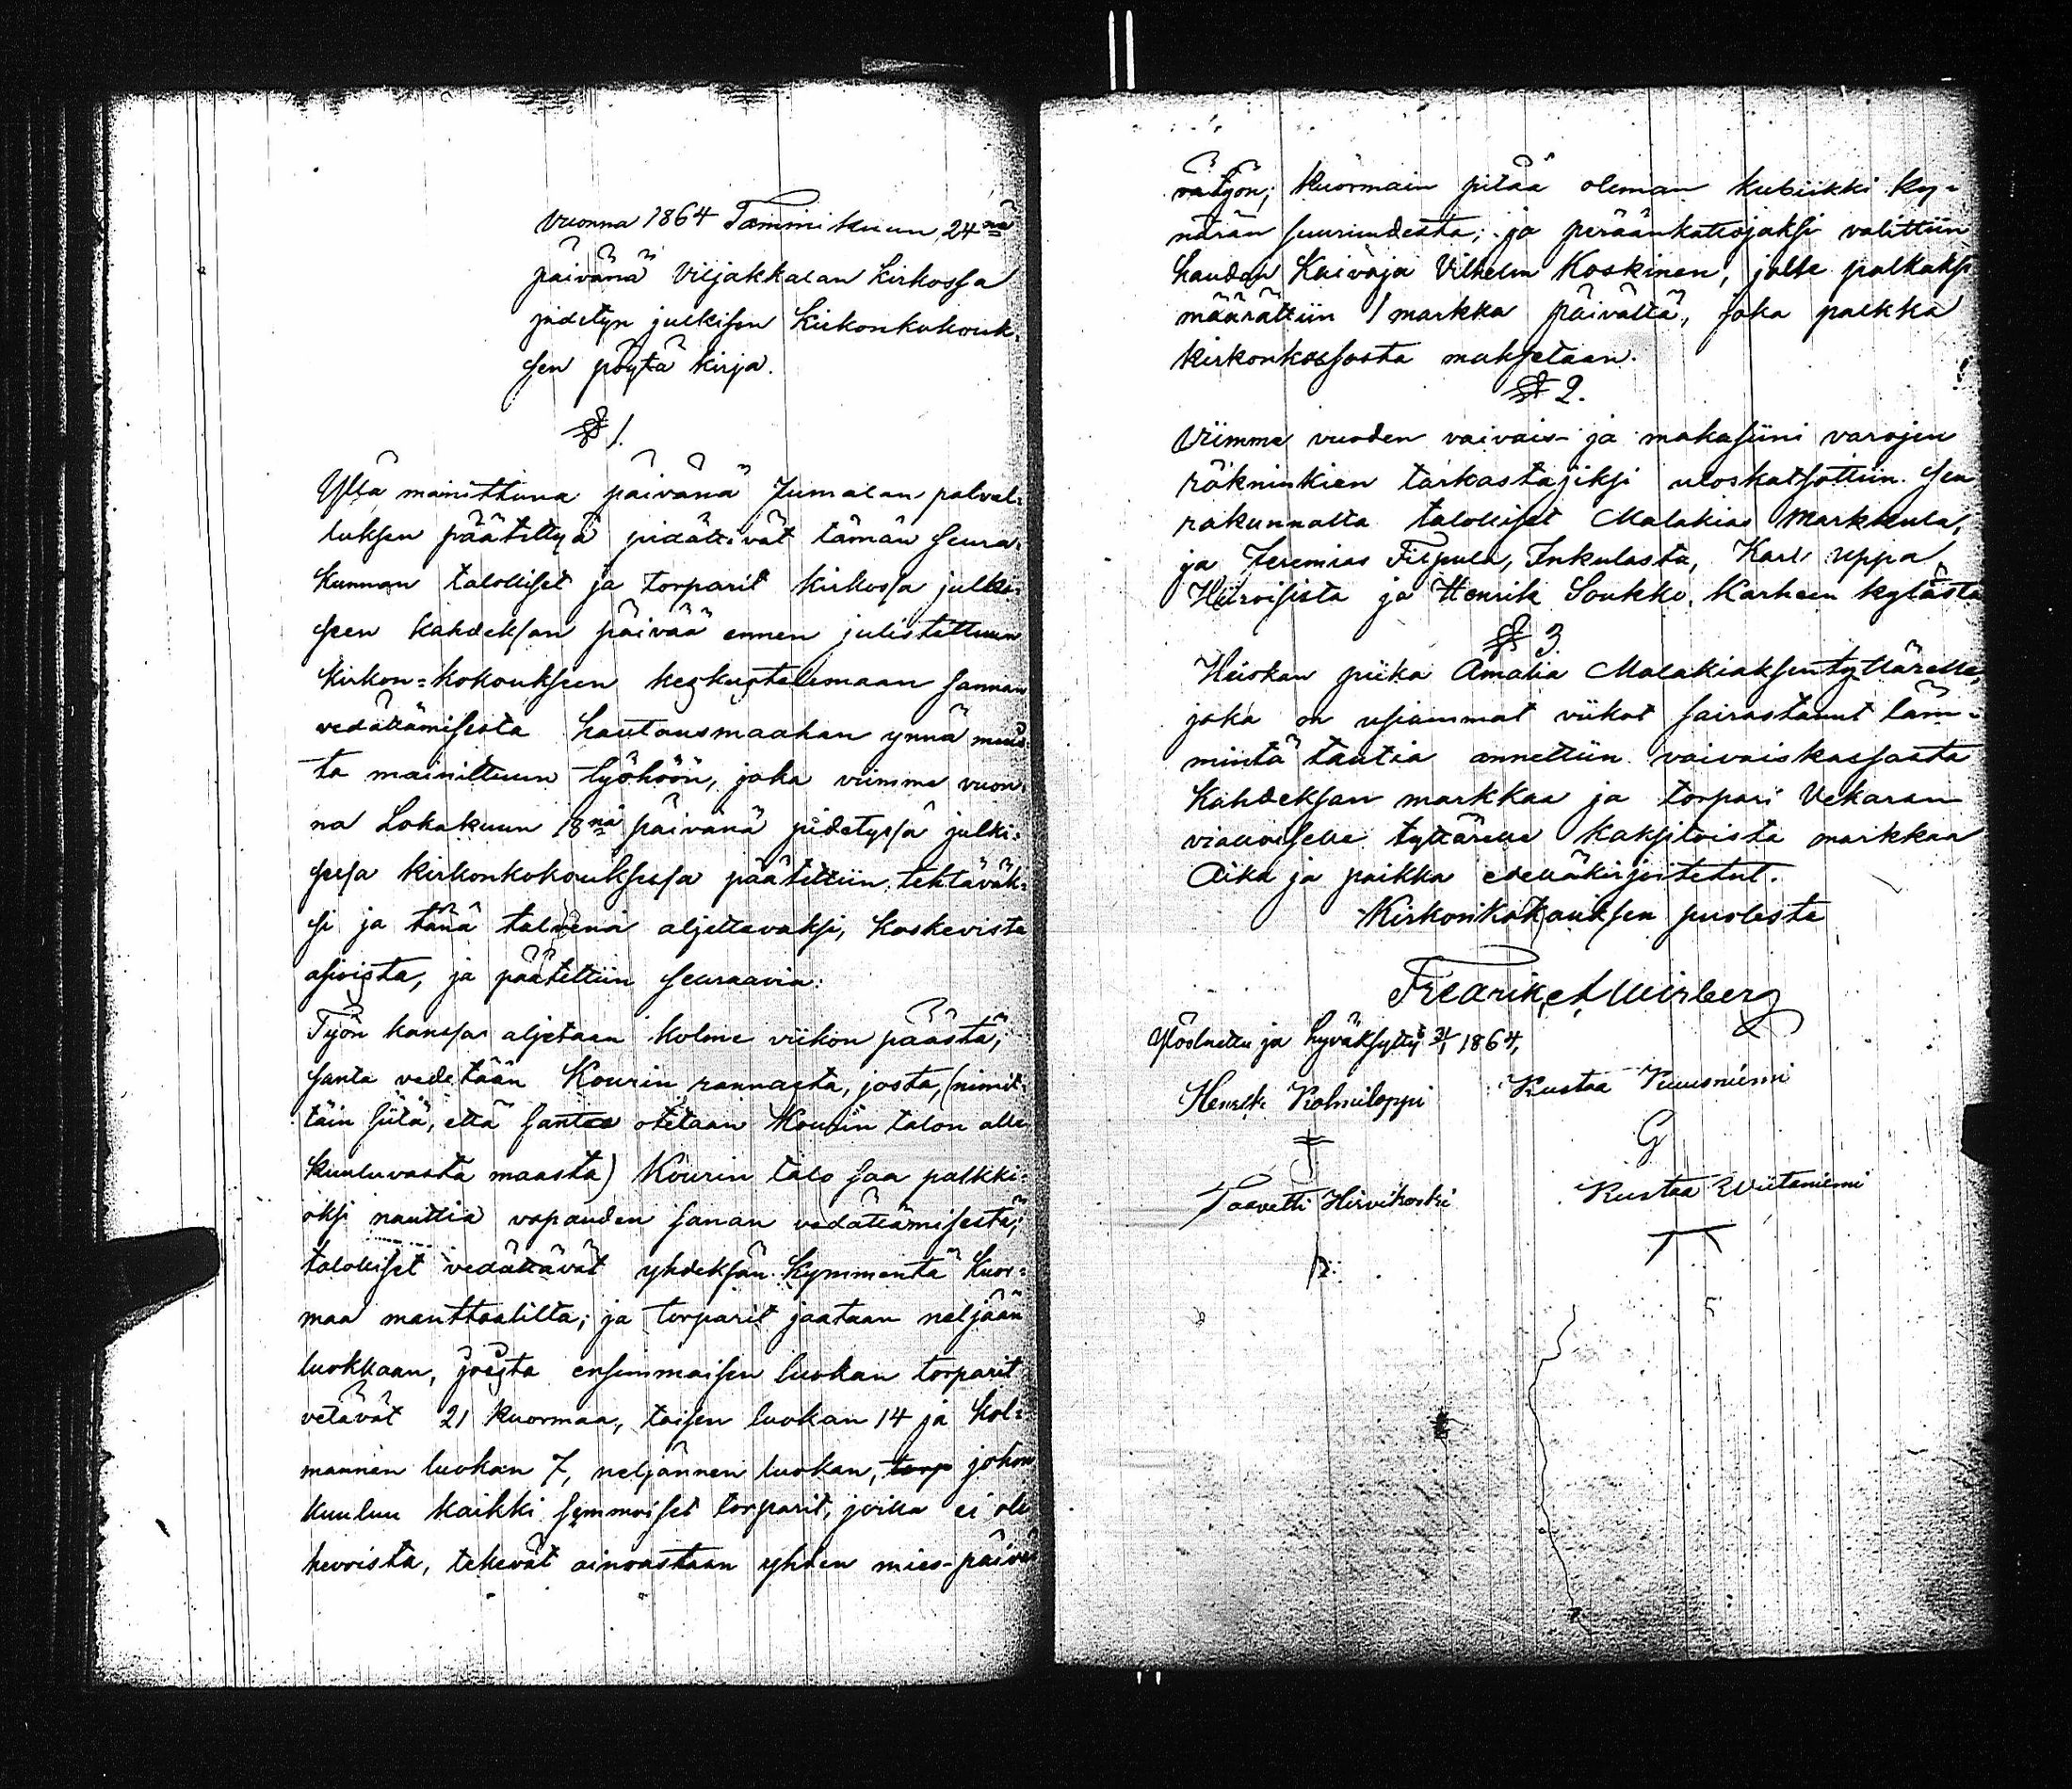 Vuonna 1864 Tammikuun 24nä
päivänä Viljakkalan Kirkossa
pidetyn julkisen Kirkonkokouk-
sen pöytäkirja.
§ 1.
Yllä mainittuna päivänä Jumalan palvel-
luksen päätettyä pidättivät tämän Seura-
kunnan talolliset ja torparit kirkossa julki-
seen kahdeksan päivää ennen julistettuun
Kirkon=kokouksen keskustelemaan sannan
vedättämisestä hautausmaahan ynnä muus-
ta mainittuun työhöön, joka viimme vuon-
na Lokakuun 18nä päivänä pidetyssä julki-
sessa kirkonkokouksessa päätettiin tehtäväk-
si ja tänä talvena aljettavaksi, koskevista
asioista, ja päätettiin seuraavia:
Työn kanssa aljetaan kolme viikon päästä;
santa vedetään Kourin rannasta, josta, (nimit-
täin siitä, että santaa otetaan Kourin talon alle
kuuluvasta maasta) Kourin talo saa palkki-
oksi nauttia vapauden sanan vedättämisestä;
talolliset vedättävät yhdeksän kymmentä kuor-
maa manttaalilta; ja torparit jaataan neljään
luokkaan, joista ensimmaisen luokan torparit
vetävät 21 kuormaa, toisen luokan 14 ja kol-
mannen luokan 7, neljännen luokan, torp johon
kuuluu kaikki semmoiset torparit, joilla ei ole
hevoista, tekevät ainoastaan yhden mies-päivä
vätyön; kuormain pitää oleman kubiikki ky-
närän suuruudesta; ja peräänkattojaksi valittiin
haudan Kaivaja Vilhelm Koskinen, jolle palkaksi
määrättiin 1 markka päivältä, joka palkka
kirkonkassasta maksetaan.
§ 2.
Viimme vuoden vaivais- ja makasiini varojen
räkninkien tarkastajiksi uloskatsottiin seu
rakunnalta talolliset Malakias Markkula,
ja Jeremias Filpula, Inkulasta, Karl Uppa
Hiiroisista ja Henrik Soukko, Karheen kylästä
§ 3.
Heiskan piika Amalia Malakiaksentyttärelle,
joka on usiammat viikot sairastanut läm-
mintä tautia annettiin vaivaiskassasta
Kahdeksan markkaa ja torpari Vekaran
vialloiselle tyttärelle kaksitoista markkaa
Aika ja paikka edelläkirjoitetut.
Kirkonkokouksen puolesta
Fredrik
Ylösluettu ja hyväksytty 31/1 1864,
Henrik Kolmiloppi Kustaa Kuusniemi
G
Taavetti Hirvikoski Kustaa Wiitaniemi